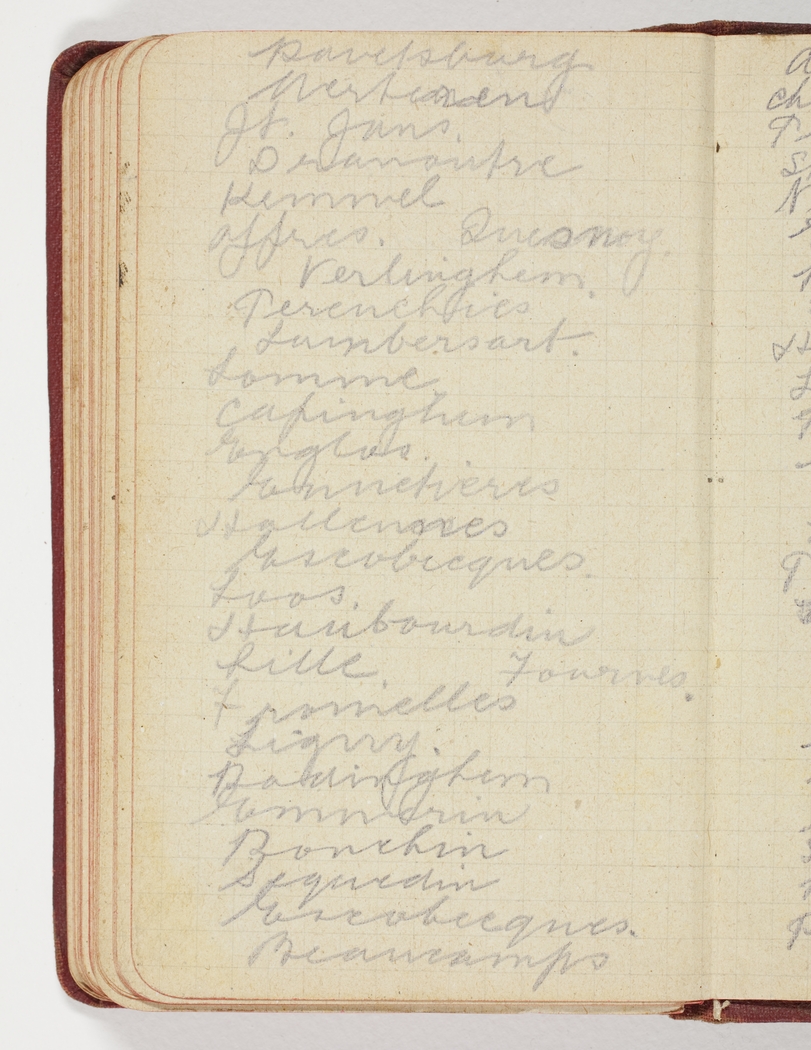 Ravetsburg
St. Jans.
Dranoutre
Kemmel
Quesnoy.
Verlinghem.
Perenchies
Lambersart.
Lomme,
Capinghem
Englos.
Ennetieres
Hallennes
Escobecques
Loos.
Haubourdin
Lille. Fournes.
Fromelles
Ligny.
Radinghem
Emmerin
Ronchin
Sequedin
Escobecques.
Beaucamps